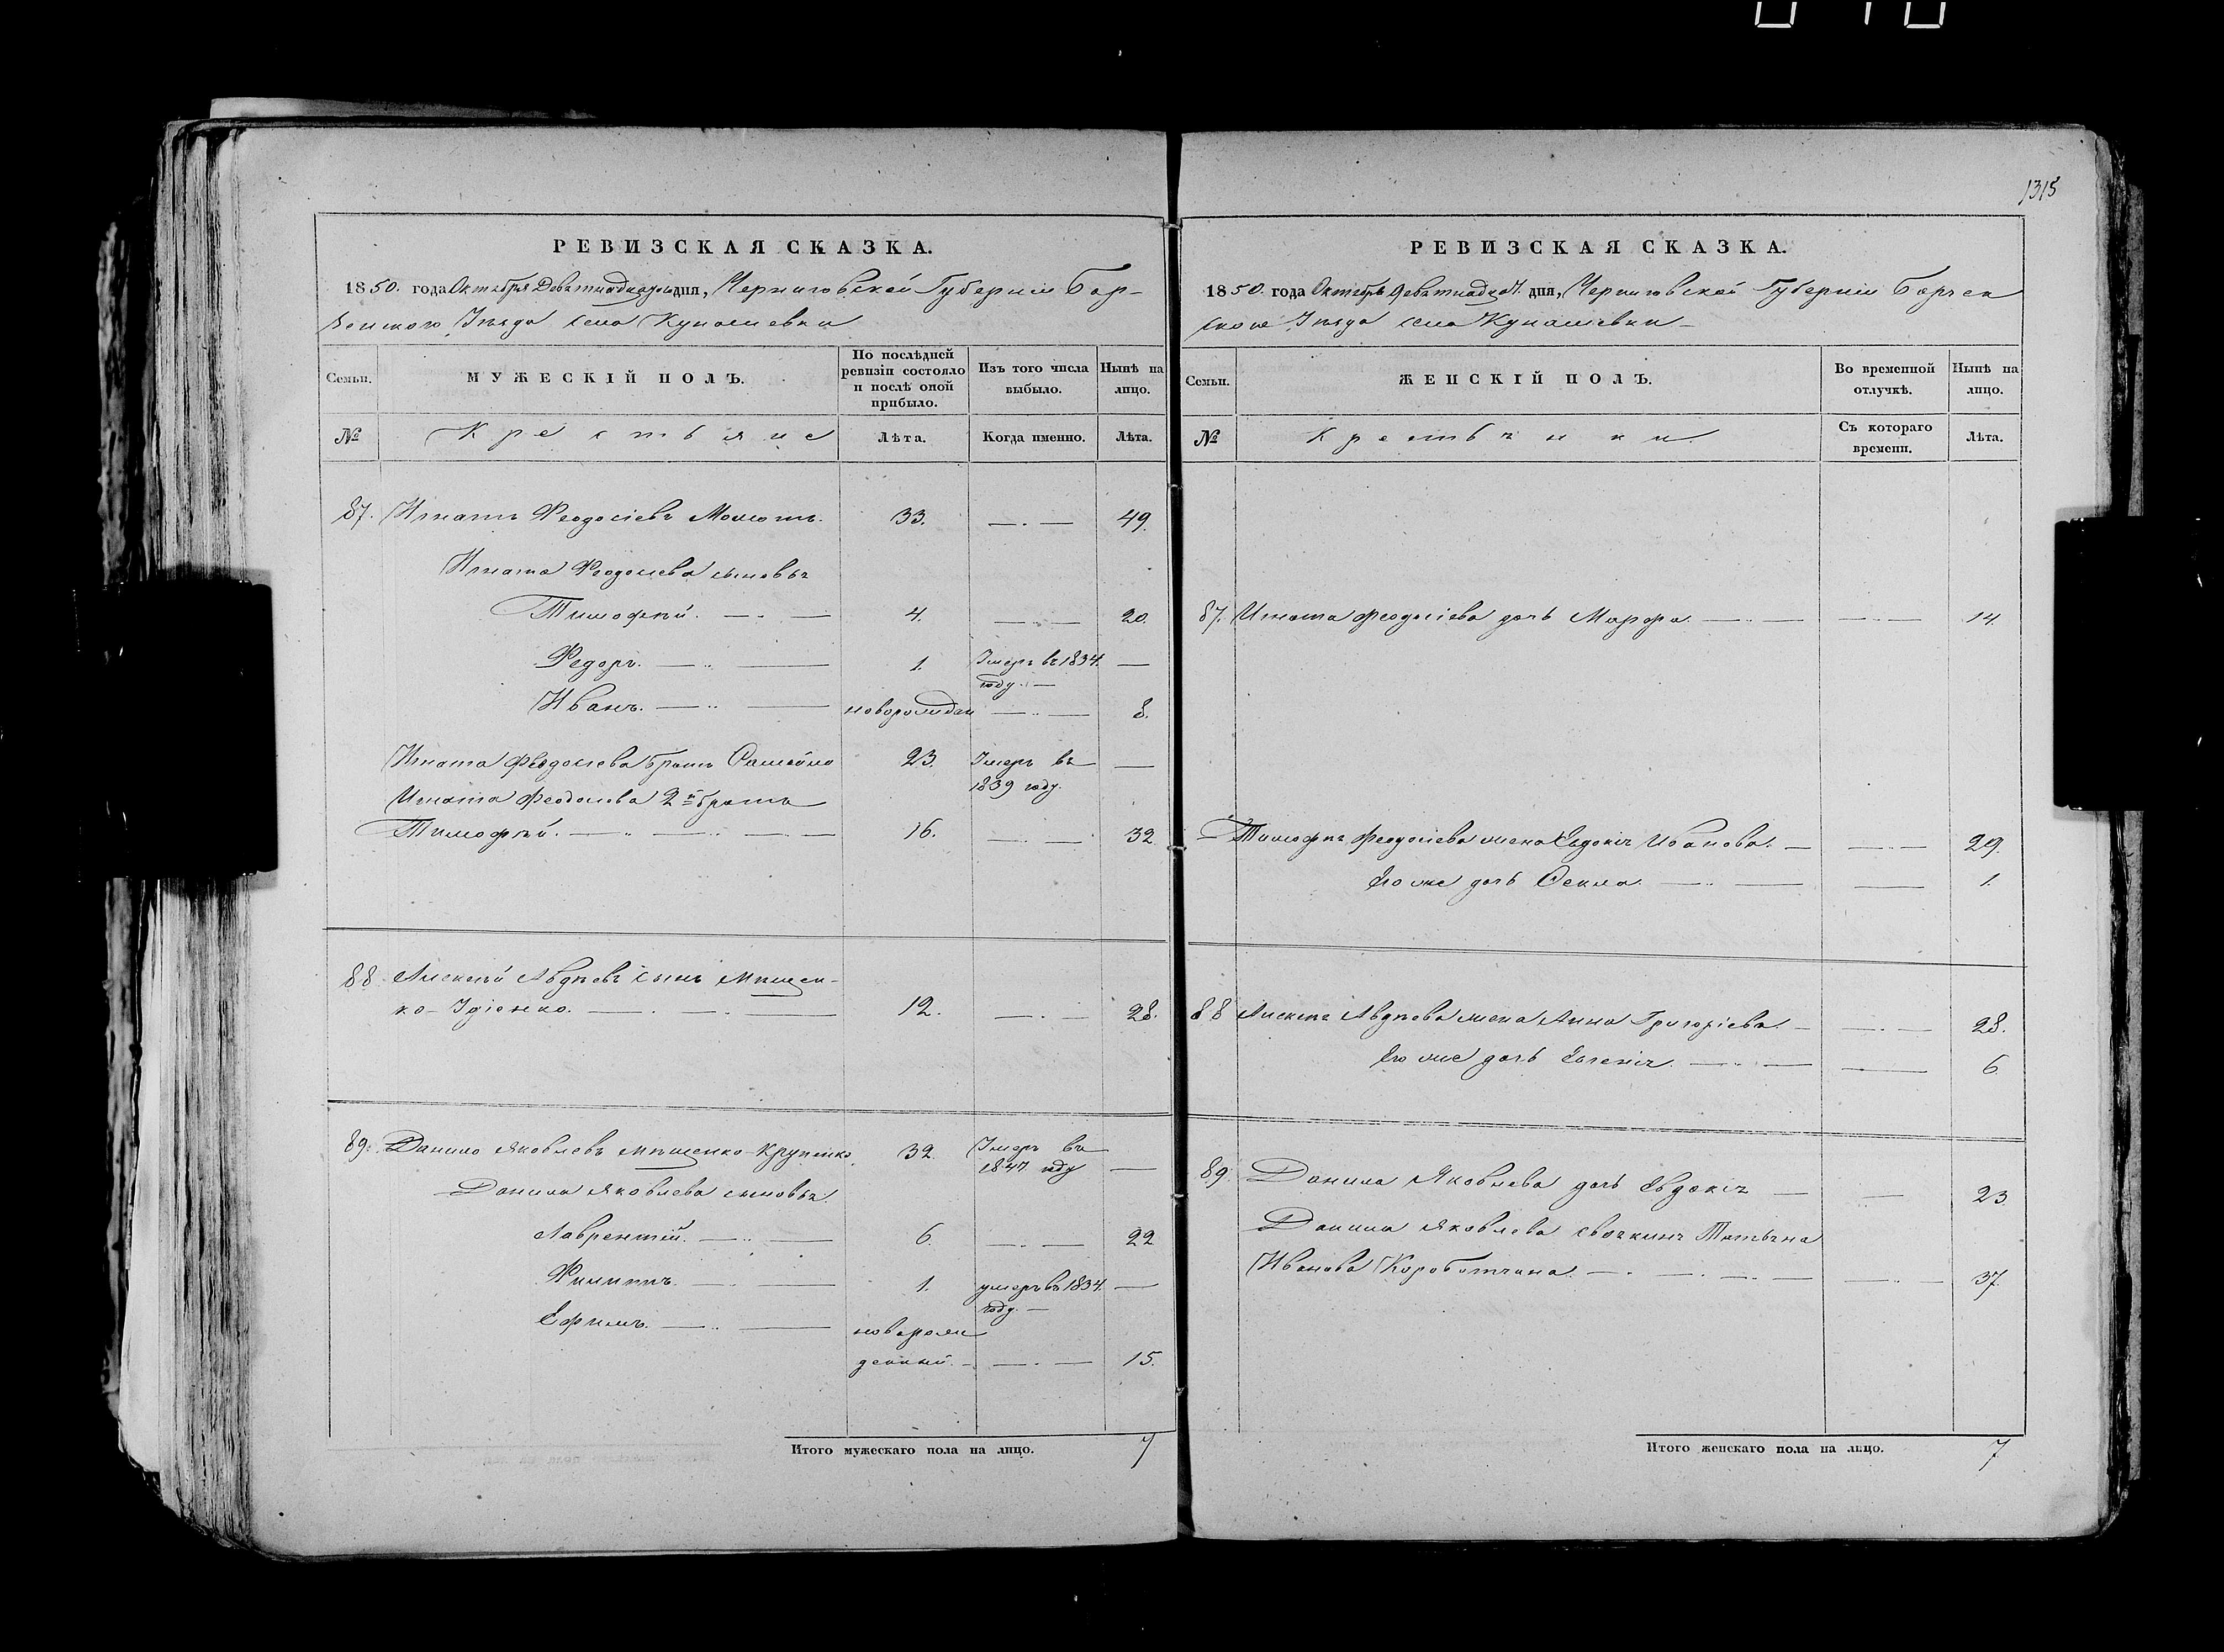 1315
РЕВИЗСКАЯ СКАЗКА.
1850. года Октября Девятнадцатого дня, Черниговской Губернии Бор-
зенского Уѣзда села Кунашевки
Семьи.
МУЖЕСКІЙ ПОЛЪ.
По послѣдней ревизіи состояло и послѣ оной прибыло.
Изъ того числа выбыло.
Нынѣ на лицо.
№
Крестьяне
Лѣта.
Когда именно.
Лѣта.
87. Игнатъ Феодосіевъ 33. 49.
Игната Феодосіева сыновья
Тимофѣй. 4. 20.
Федоръ. 1. Умеръ въ 1834.
году.
Иванъ. новорожден 8.
Игната Феодосіева братъ 23. Умеръ въ
1839 году.
Игната Феодосіева 2й братъ
Тимофѣй. 16. 32
88 Алексѣй Авдѣевъ сынъ Мищен-
ко 12. 28.
89. Данило Яковлевъ Мищенко 32. Умеръ въ
1847 году
Данила Яковлева сыновья.
Лаврентій. 6. 22
Филиппъ. 1. умеръ въ 1834.
году.
Ефимъ. новорож
денный. 15.
Итого мужескаго пола на лицо. 7
РЕВИЗСКАЯ СКАЗКА.
1850. года Октября Девятнадцат. дня, Черниговской Губерніи Борзен
ского Уѣзда села Кунашевки
Семьи.
ЖЕНСКІЙ ПОЛЪ.
Во временной отлучкѣ.
Нынѣ на лицо.
№
Крестьянки
Съ котораго времени.
Лѣта.
87. Игната Феодосіева дочь Марфа. 14.
Тимофея Феодосіева жена Евдокія Иванова. 29.
Его же дочь Фекла. 1.
88 Алексѣя Авдѣева жена Анна Григоріева. 28.
Его же дочь Евгенія. 6
89. Данила Яковлева дочь Евдокія 23
Данила Яковлева своякиня Татьяна
Иванова 37.
Итого женскаго пола на лицо. 7